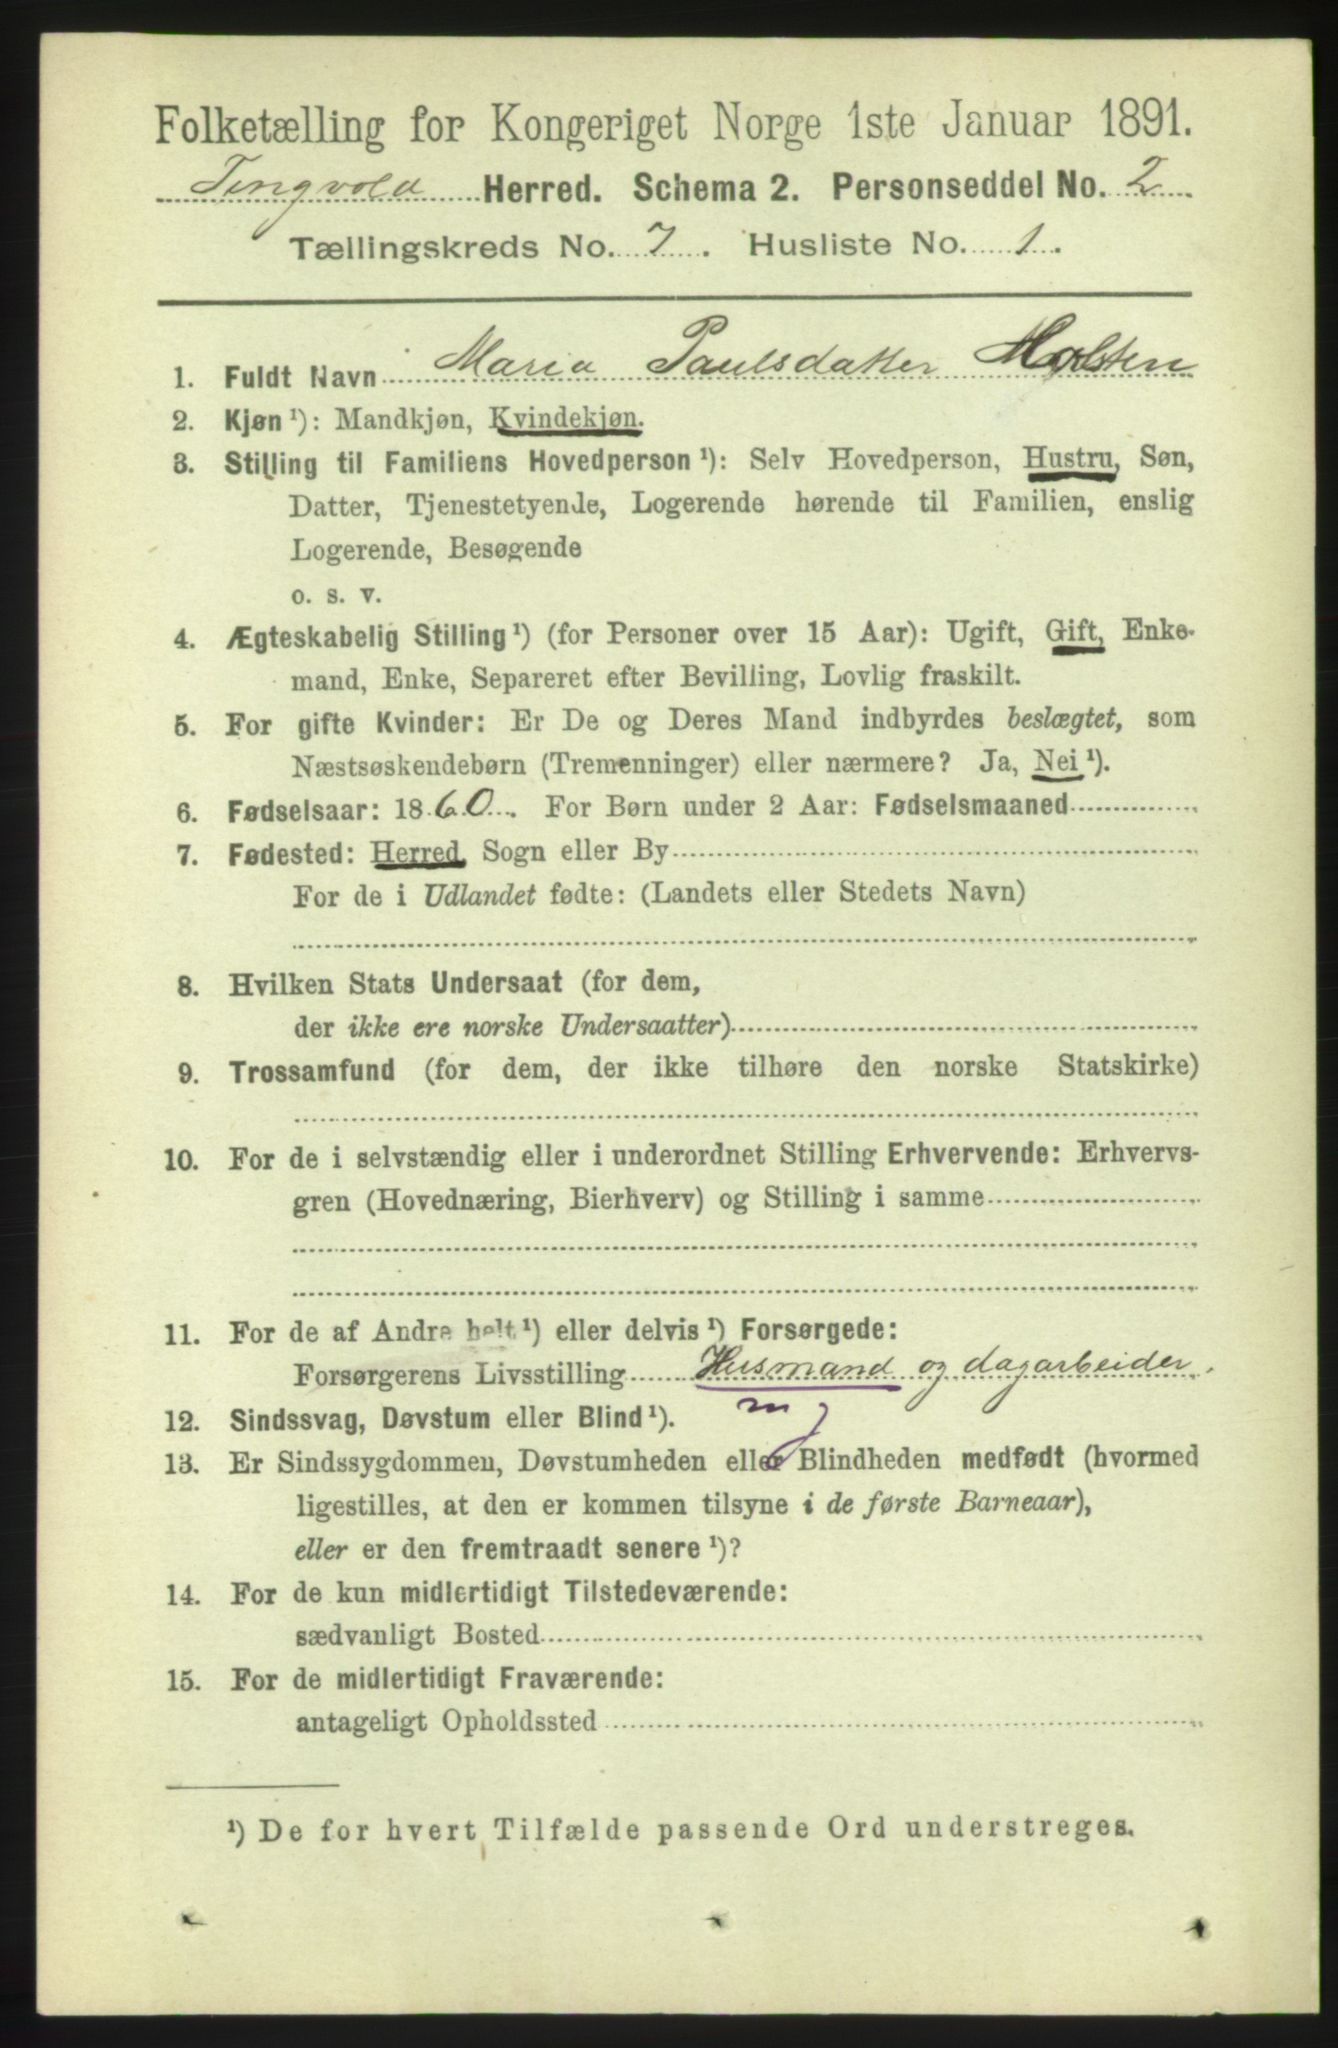 Folketælling for Kongeriget Norge 1ste Januar 1891.
Tingvold Herred. Schema 2. Personseddel No. 2
Tællingskreds No. 7. Husliste No. 1.
1. Fuldt Navn Maria Paulsdatter Holsten
2. Kjøn ¹): Mandkjøn, Kvindekjøn.
3. Stilling til Familiens Hovedperson ¹): Selv Hovedperson, Hustru, Søn,
Datter, Tjenestetyende, Logerende hørende til Familien, enslig
Logerende, Besøgende
o. s. v.
4. Ægteskabelig Stilling ¹) (for Personer over 15 Aar): Ugift, Gift, Enke-
mand, Enke, Separeret efter Bevilling, Lovlig fraskilt.
5. For gifte Kvinder: Er De og Deres Mand indbyrdes beslægtet, som
Næstsøskendebørn (Tremenninger) eller nærmere? Ja, Nei ¹).
6. Fødselsaar: 1860. For Børn under 2 Aar: Fødselsmaaned
7. Fødested: Herred, Sogn eller By
For de i Udlandet fødte: (Landets eller Stedets Navn)
8. Hvilken Stats Undersaat (for dem,
der ikke ere norske Undersaatter)
9. Trossamfund (for dem, der ikke tilhøre den norske Statskirke)
10. For de i selvstændig eller i underordnet Stilling Erhvervende: Erhvervs-
gren (Hovednæring, Bierhverv) og Stilling i samme
11. For de af Andre helt ¹) eller delvis ¹) Forsørgede:
Forsørgerens Livsstilling Husmand og dagarbeider.
12. Sindssvag, Døvstum eller Blind ¹). m j
13. Er Sindssygdommen, Døvstumheden eller Blindheden medfødt (hvormed
ligestilles, at den er kommen tilsyne i de første Barneaar),
eller er den fremtraadt senere ¹)?
14. For de kun midlertidigt Tilstedeværende:
sædvanligt Bosted
15. For de midlertidigt Fraværende:
antageligt Opholdssted
¹) De for hvert Tilfælde passende Ord understreges.